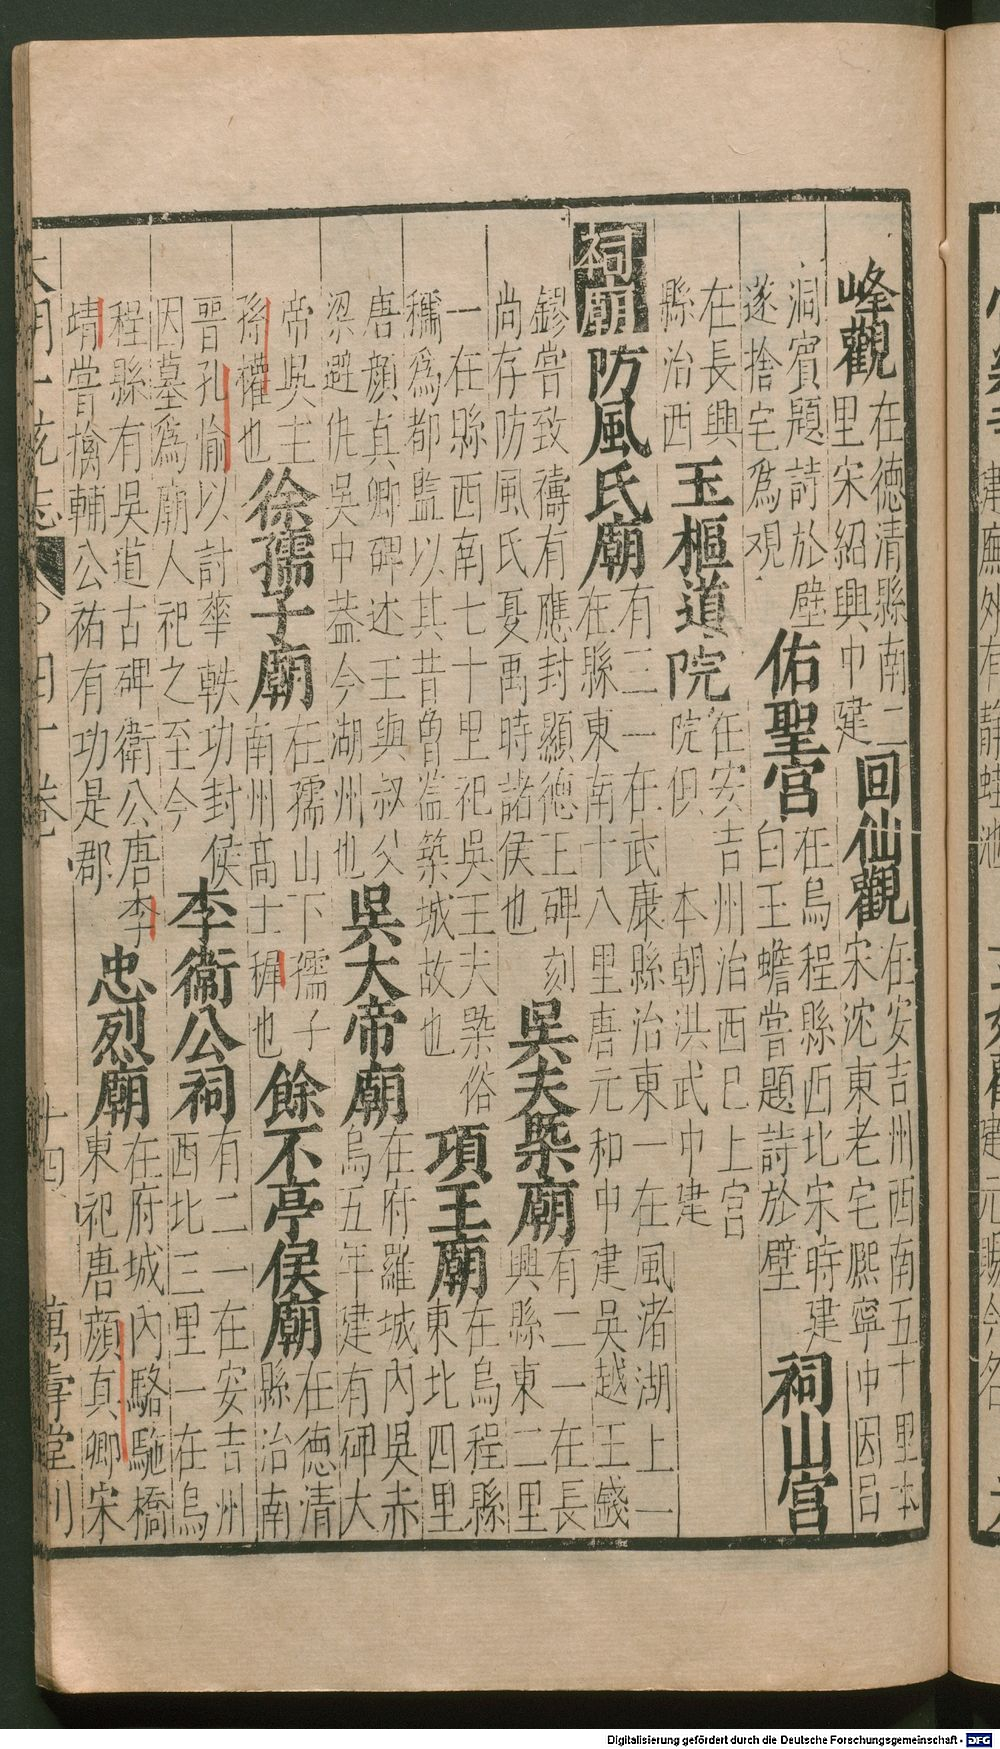 峰觀
在德清縣南二
里宋紹興中建
回仙觀
在安吉州西南五十里本
宋沈東老宅熙寧中因呂
洞賓題詩於壁
遂捨宅爲观
佑聖宮
在烏程縣西北宋時建
白玉蟾嘗題詩於壁
祠山宮
在長興
縣治西
玉樞道院
在安吉州治西已上宮
院但 本朝洪武中建
祠廟
防風氏廟
有三一在武康縣治東一在風渚湖上一
在縣東南十八里唐元和中建吳越王錢
鏐嘗致禱有應封顯德王碑刻
尚存防風氏夏禹時諸侯也
吳夫槩廟
有二一在長
興縣東二里
一在縣西南七十里祀吳王夫槩俗
稱爲都監以其昔曾監築城故也
項王廟
在烏程縣
東北四里
唐顔真卿碑述王與叔父
梁避仇吳中葢今湖州也
吳大帝廟
在府羅城內吳赤
烏五年建有碑大
帝吳主
孫權也
徐孺子廟
在孺山下孺子
南州高士穉也
餘不亭侯廟
在德清
縣治南
晋孔愉以討華軼功封侯
因墓爲廟人祀之至今
李衞公祠
有二一在安吉州
西北二里一在烏
程縣有吳道古碑衞公唐李
靖嘗擒輔公祐有功是郡
忠烈廟
在府城內駱駞橋
東祀唐顔真卿宋
大明一統志 四十卷 十四 萬壽堂刊
Digitalisierung gefördert durch die Deutsche Forschungsgemeinschaft - DFG